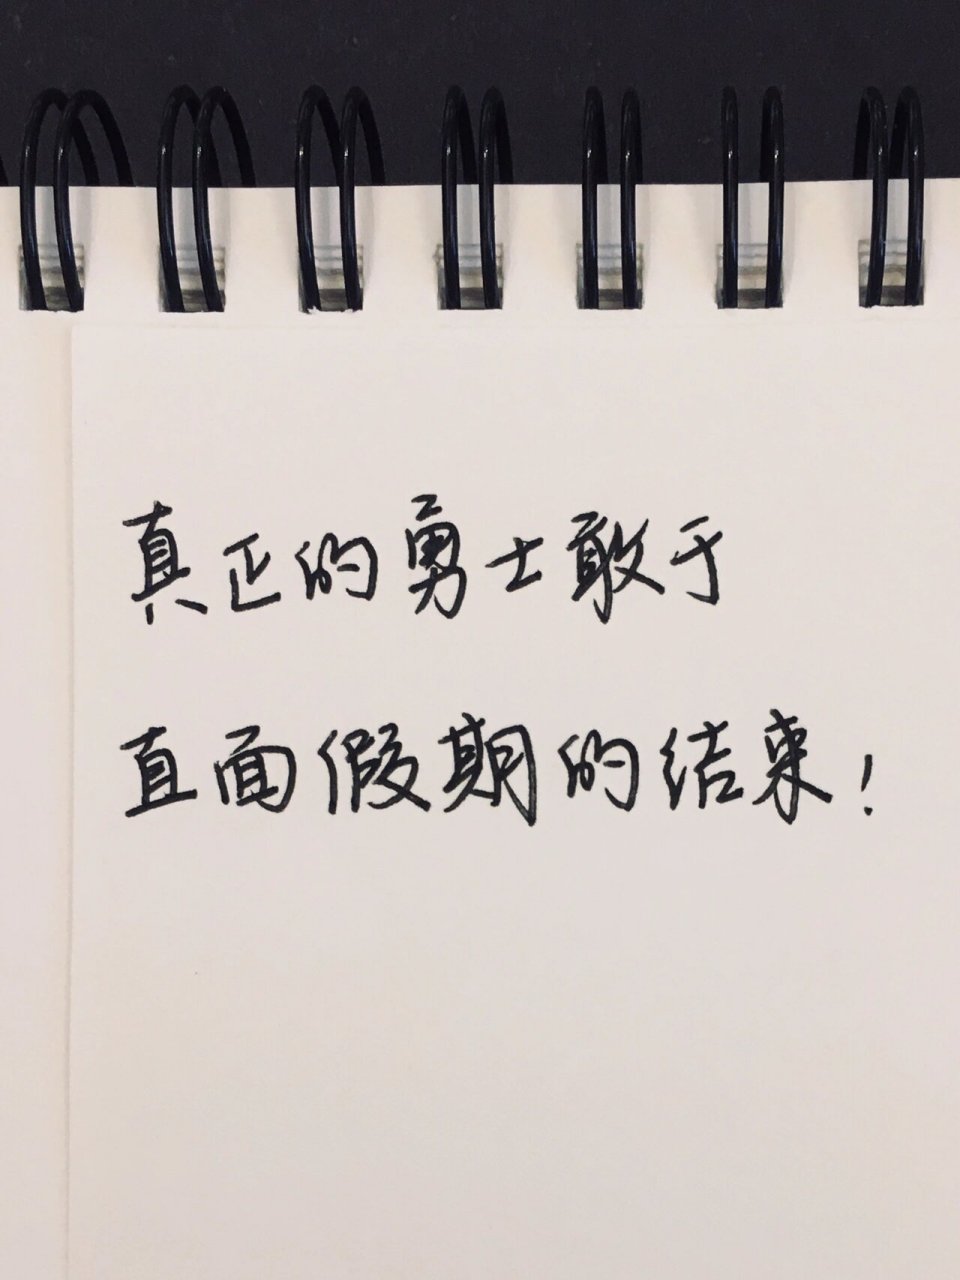 真正的勇士敢于
直面假期的结束！